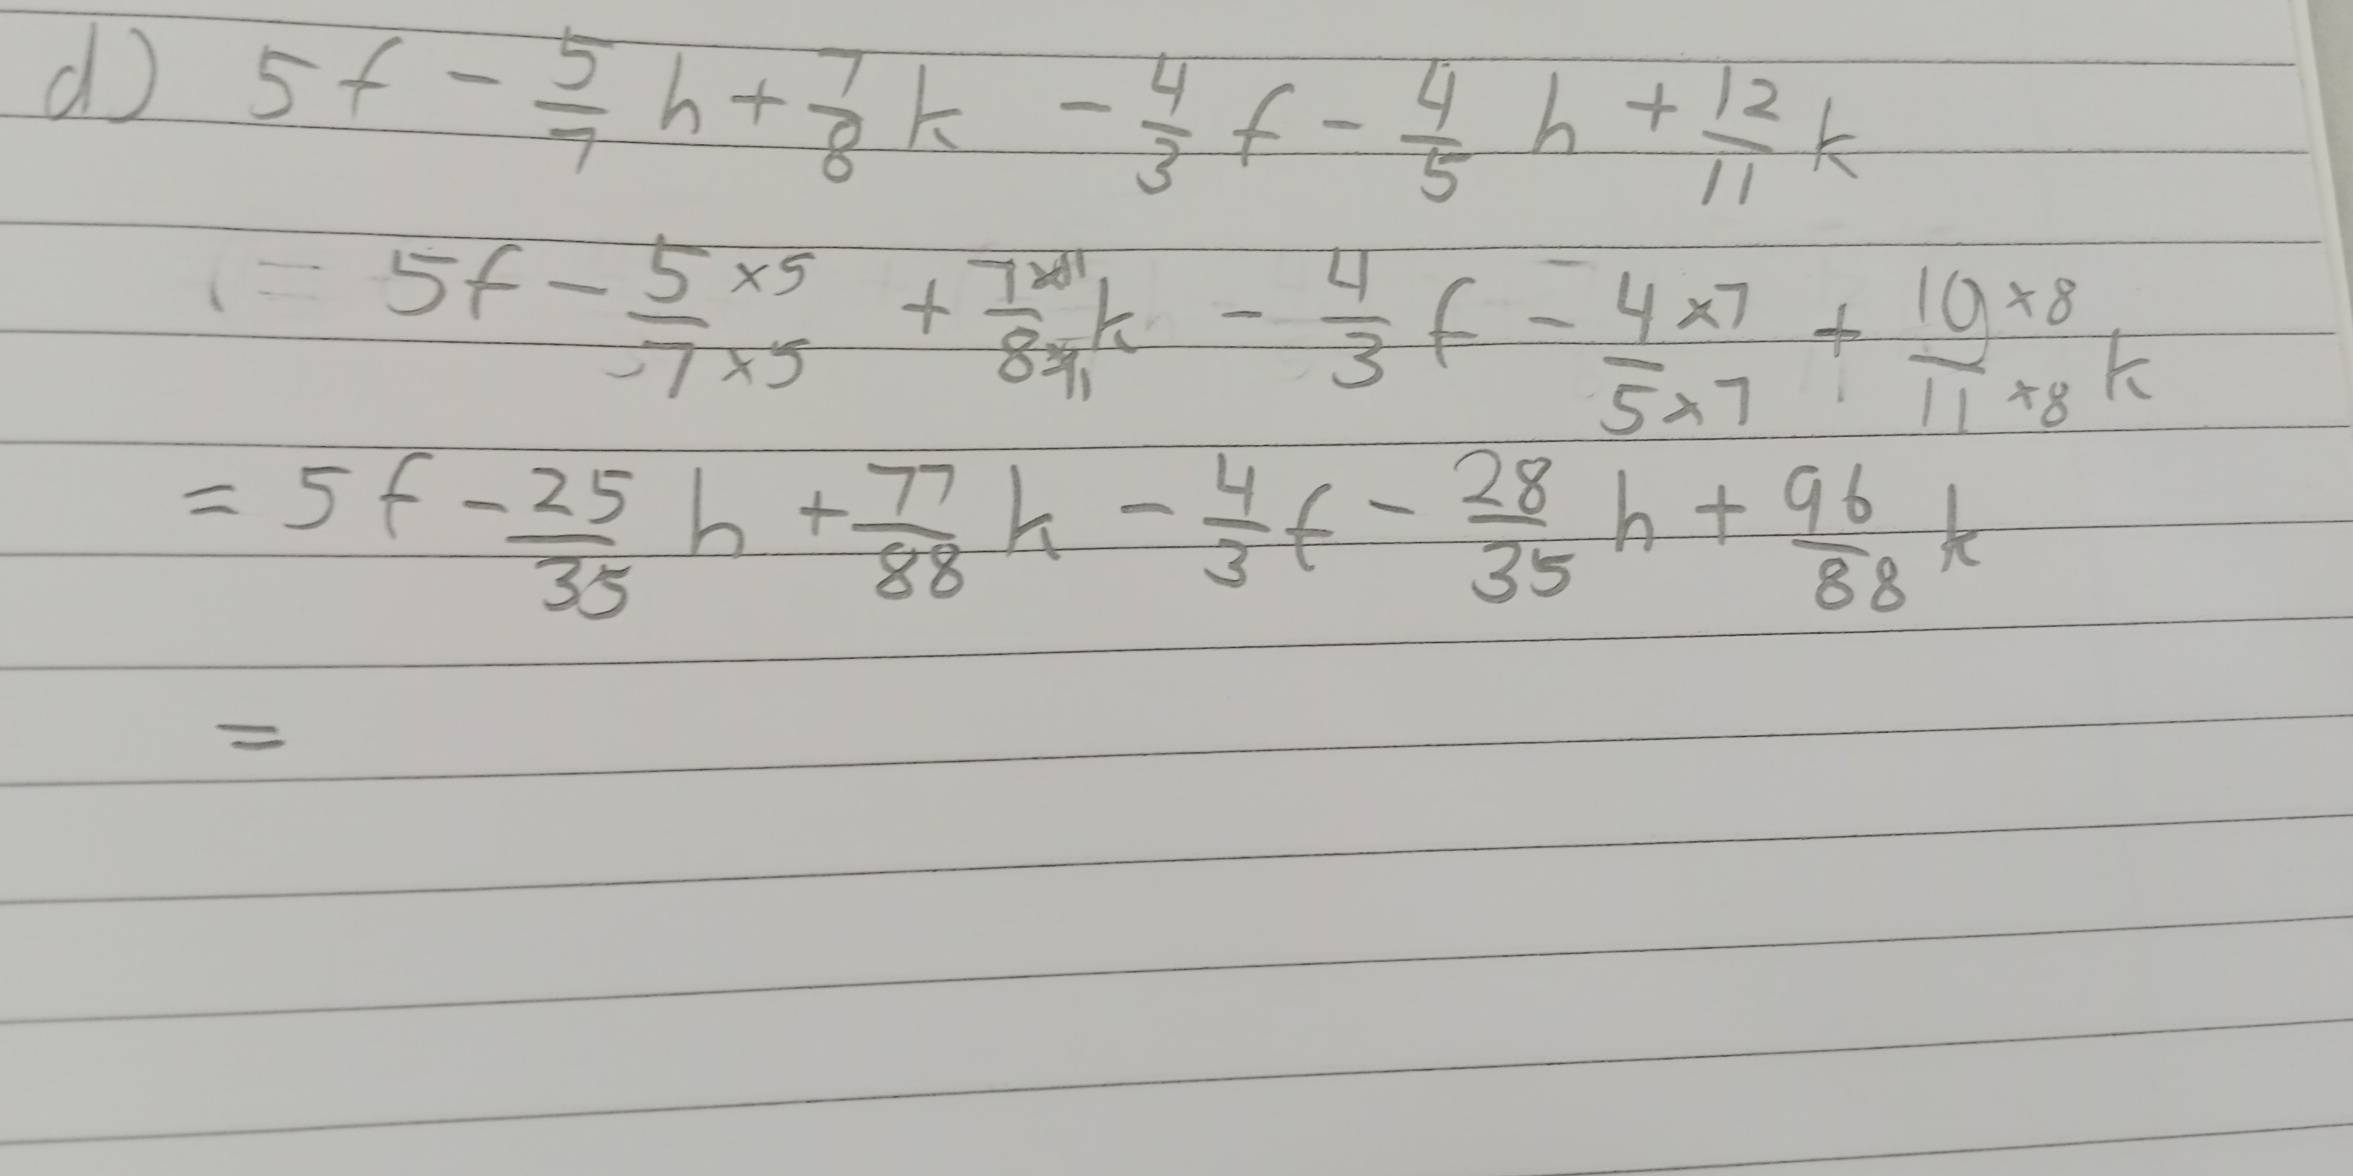 d) 5f - 5/7 h + 7/8 k - 4/3 f - 4/5 h + 12/11 k
= 5f - 5×5/7×5 + 7×11/8×11 k - 4/3 f - 4×7/5×7 + 10×8/11×8 k
= 5f - 25/35 h + 77/88 k - 4/3 f - 28/35 h + 96/88 k
=